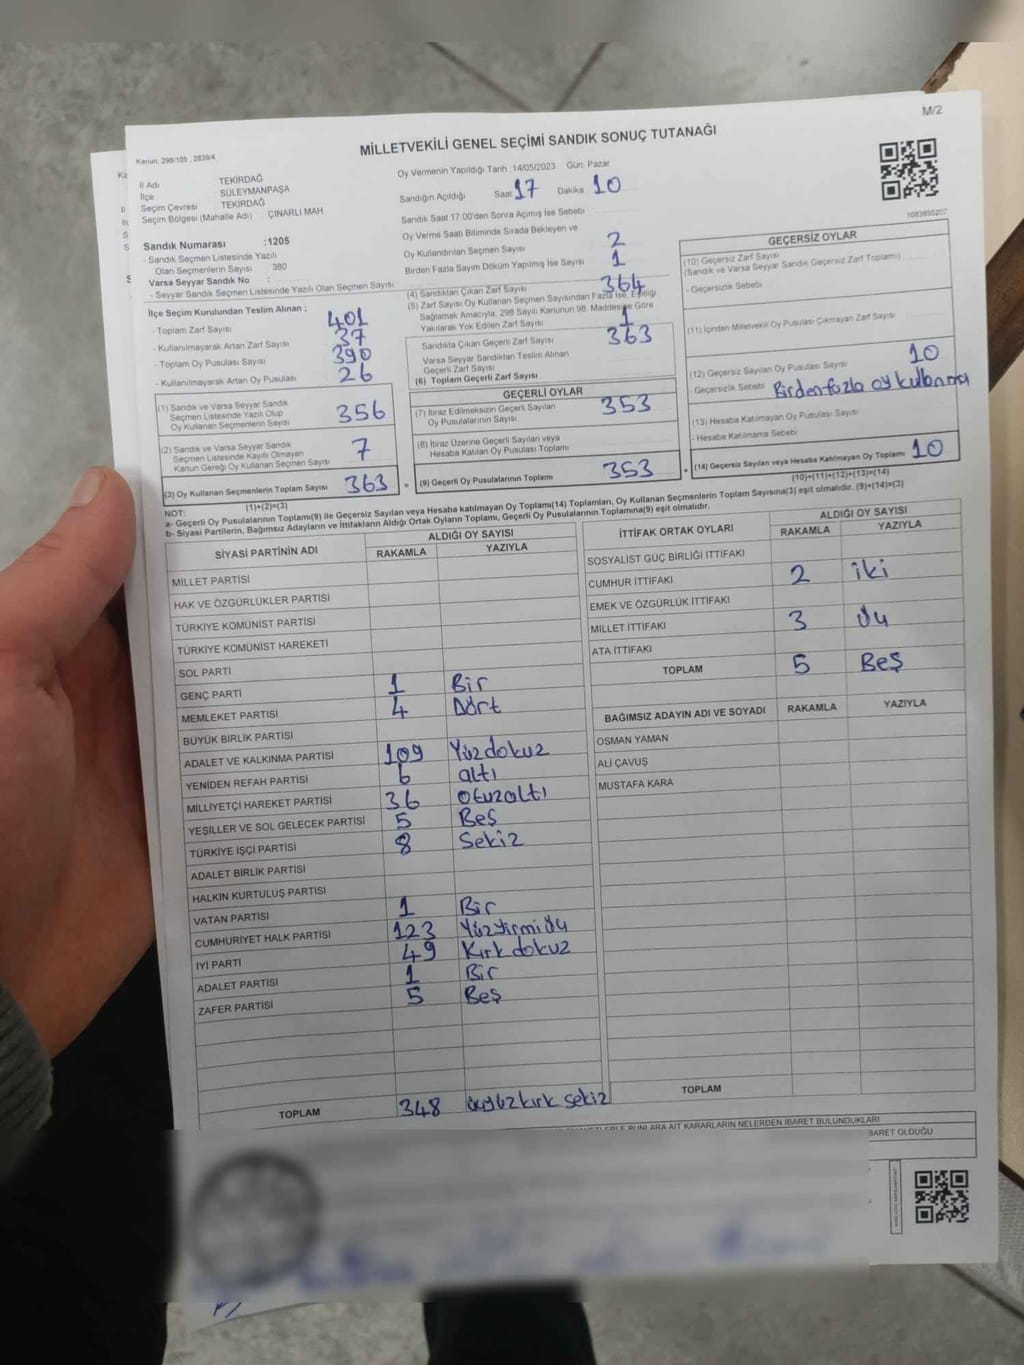 M/2
MİLLETVEKİLİ GENEL SEÇİMİ SANDIK SONUÇ TUTANAĞI
Kanun: 298/105 , 2839/4
İl Adı TEKİRDAĞ
İlçe SÜLEYMANPAŞA
Seçim Çevresi TEKİRDAĞ
Seçim Bölgesi (Mahalle Adı) ÇINARLI MAH
Sandık Numarası :1205
- Sandık Seçmen Listesinde Yazılı
Olan Seçmenlerin Sayısı 380
Varsa Seyyar Sandık No :
- Seyyar Sandık Seçmen Listesinde Yazılı Olan Seçmen Sayısı
Oy Vermenin Yapıldığı Tarih :14/05/2023 Gün: Pazar
Sandığın Açıldığı Saat 17 Dakika 10
Sandık Saat 17:00'den Sonra Açımış İse Sebebi
Oy Verme Saati Bitiminde Sırada Bekleyen ve
Oy Kullandırılan Seçmen Sayısı 2
Birden Fazla Sayım Döküm Yapılmış İse Sayısı 1
1083855207
İlçe Seçim Kurulundan Teslim Alınan ;
- Toplam Zarf Sayısı 401
- Kullanılmayarak Artan Zarf Sayısı 37
- Toplam Oy Pusulası Sayısı 390
- Kullanılmayarak Artan Oy Pusulası 26
(1) Sandık ve Varsa Seyyar Sandık
Seçmen Listesinde Yazılı Olup
Oy Kullanan Seçmenlerin Sayısı 356
(2) Sandık ve Varsa Seyyar Sandık
Seçmen Listesinde Kayıtlı Olmayan
Kanun Gereği Oy Kullanan Seçmen Sayısı 7
(3) Oy Kullanan Seçmenlerin Toplam Sayısı 363
(1)+(2)=(3)
(4) Sandıktan Çıkan Zarf Sayısı 364
(5) Zarf Sayısı Oy Kullanan Seçmen Sayısından Fazla İse, Eşitliği
Sağlamak Amacıyla, 298 Sayılı Kanunun 98. Maddesine Göre
Yakılarak Yok Edilen Zarf Sayısı 1
Sandıkta Çıkan Geçerli Zarf Sayısı 363
Varsa Seyyar Sandıktan Teslim Alınan
Geçerli Zarf Sayısı
(6) Toplam Geçerli Zarf Sayısı
GEÇERLİ OYLAR
(7) İtiraz Edilmeksizin Geçerli Sayılan
Oy Pusulalarının Sayısı 353
(8) İtiraz Üzerine Geçerli Sayılan veya
Hesaba Katılan Oy Pusulası Toplamı
= (9) Geçerli Oy Pusulalarının Toplamı 353
GEÇERSİZ OYLAR
(10) Geçersiz Zarf Sayısı
(Sandık ve Varsa Seyyar Sandık Geçersiz Zarf Toplamı)
- Geçersizlik Sebebi
(11) İçinden Milletvekili Oy Pusulası Çıkmayan Zarf Sayısı
(12) Geçersiz Sayılan Oy Pusulası Sayısı 10
Geçersizlik Sebebi Birden fazla oy kullanıcı
(13) Hesaba Katılmayan Oy Pusulası Sayısı
- Hesaba Katılmama Sebebi
+ (14) Geçersiz Sayılan veya Hesaba Katılmayan Oy Toplamı 10
(10)+(11)+(12)+(13)=(14)
NOT:
a- Geçerli Oy Pusulalarının Toplamı(9) ile Geçersiz Sayılan veya Hesaba Katılmayan Oy Toplamı(14) Toplamları, Oy Kullanan Seçmenlerin Toplam Sayısına(3) eşit olmalıdır. (9)+(14)=(3)
b- Siyasi Partilerin, Bağımsız Adayların ve İttifakların Aldığı Ortak Oyların Toplamı, Geçerli Oy Pusulalarının Toplamına(9) eşit olmalıdır.
SİYASİ PARTİNİN ADI ALDIĞI OY SAYISI
RAKAMLA YAZIYLA
MİLLET PARTİSİ
HAK VE ÖZGÜRLÜKLER PARTİSİ
TÜRKİYE KOMÜNİST PARTİSİ
TÜRKİYE KOMÜNİST HAREKETİ
SOL PARTİ
GENÇ PARTİ 1 Bir
MEMLEKET PARTİSİ 4 Dört
BÜYÜK BİRLİK PARTİSİ
ADALET VE KALKINMA PARTİSİ 109 Yüzdokuz
YENİDEN REFAH PARTİSİ 6 altı
MİLLİYETÇİ HAREKET PARTİSİ 36 otuzaltı
YEŞİLLER VE SOL GELECEK PARTİSİ 5 Beş
TÜRKİYE İŞÇİ PARTİSİ 8 Sekiz
ADALET BİRLİK PARTİSİ
HALKIN KURTULUŞ PARTİSİ
VATAN PARTİSİ 1 Bir
CUMHURİYET HALK PARTİSİ 123 Yüzyirmiüç
İYİ PARTİ 49 Kırkdokuz
ADALET PARTİSİ 1 Bir
ZAFER PARTİSİ 5 Beş
TOPLAM 348 üçyüzkırk sekiz
İTTİFAK ORTAK OYLARI ALDIĞI OY SAYISI
RAKAMLA YAZIYLA
SOSYALİST GÜÇ BİRLİĞİ İTTİFAKI
CUMHUR İTTİFAKI 2 iki
EMEK VE ÖZGÜRLÜK İTTİFAKI
MİLLET İTTİFAKI 3 üç
ATA İTTİFAKI
TOPLAM 5 Beş
BAĞIMSIZ ADAYIN ADI VE SOYADI RAKAMLA YAZIYLA
OSMAN YAMAN
ALİ ÇAVUŞ
MUSTAFA KARA
TOPLAM
BUNLARA AİT KARARLARIN NELERDEN İBARET BULUNDUKLARI
BARET OLDUĞU